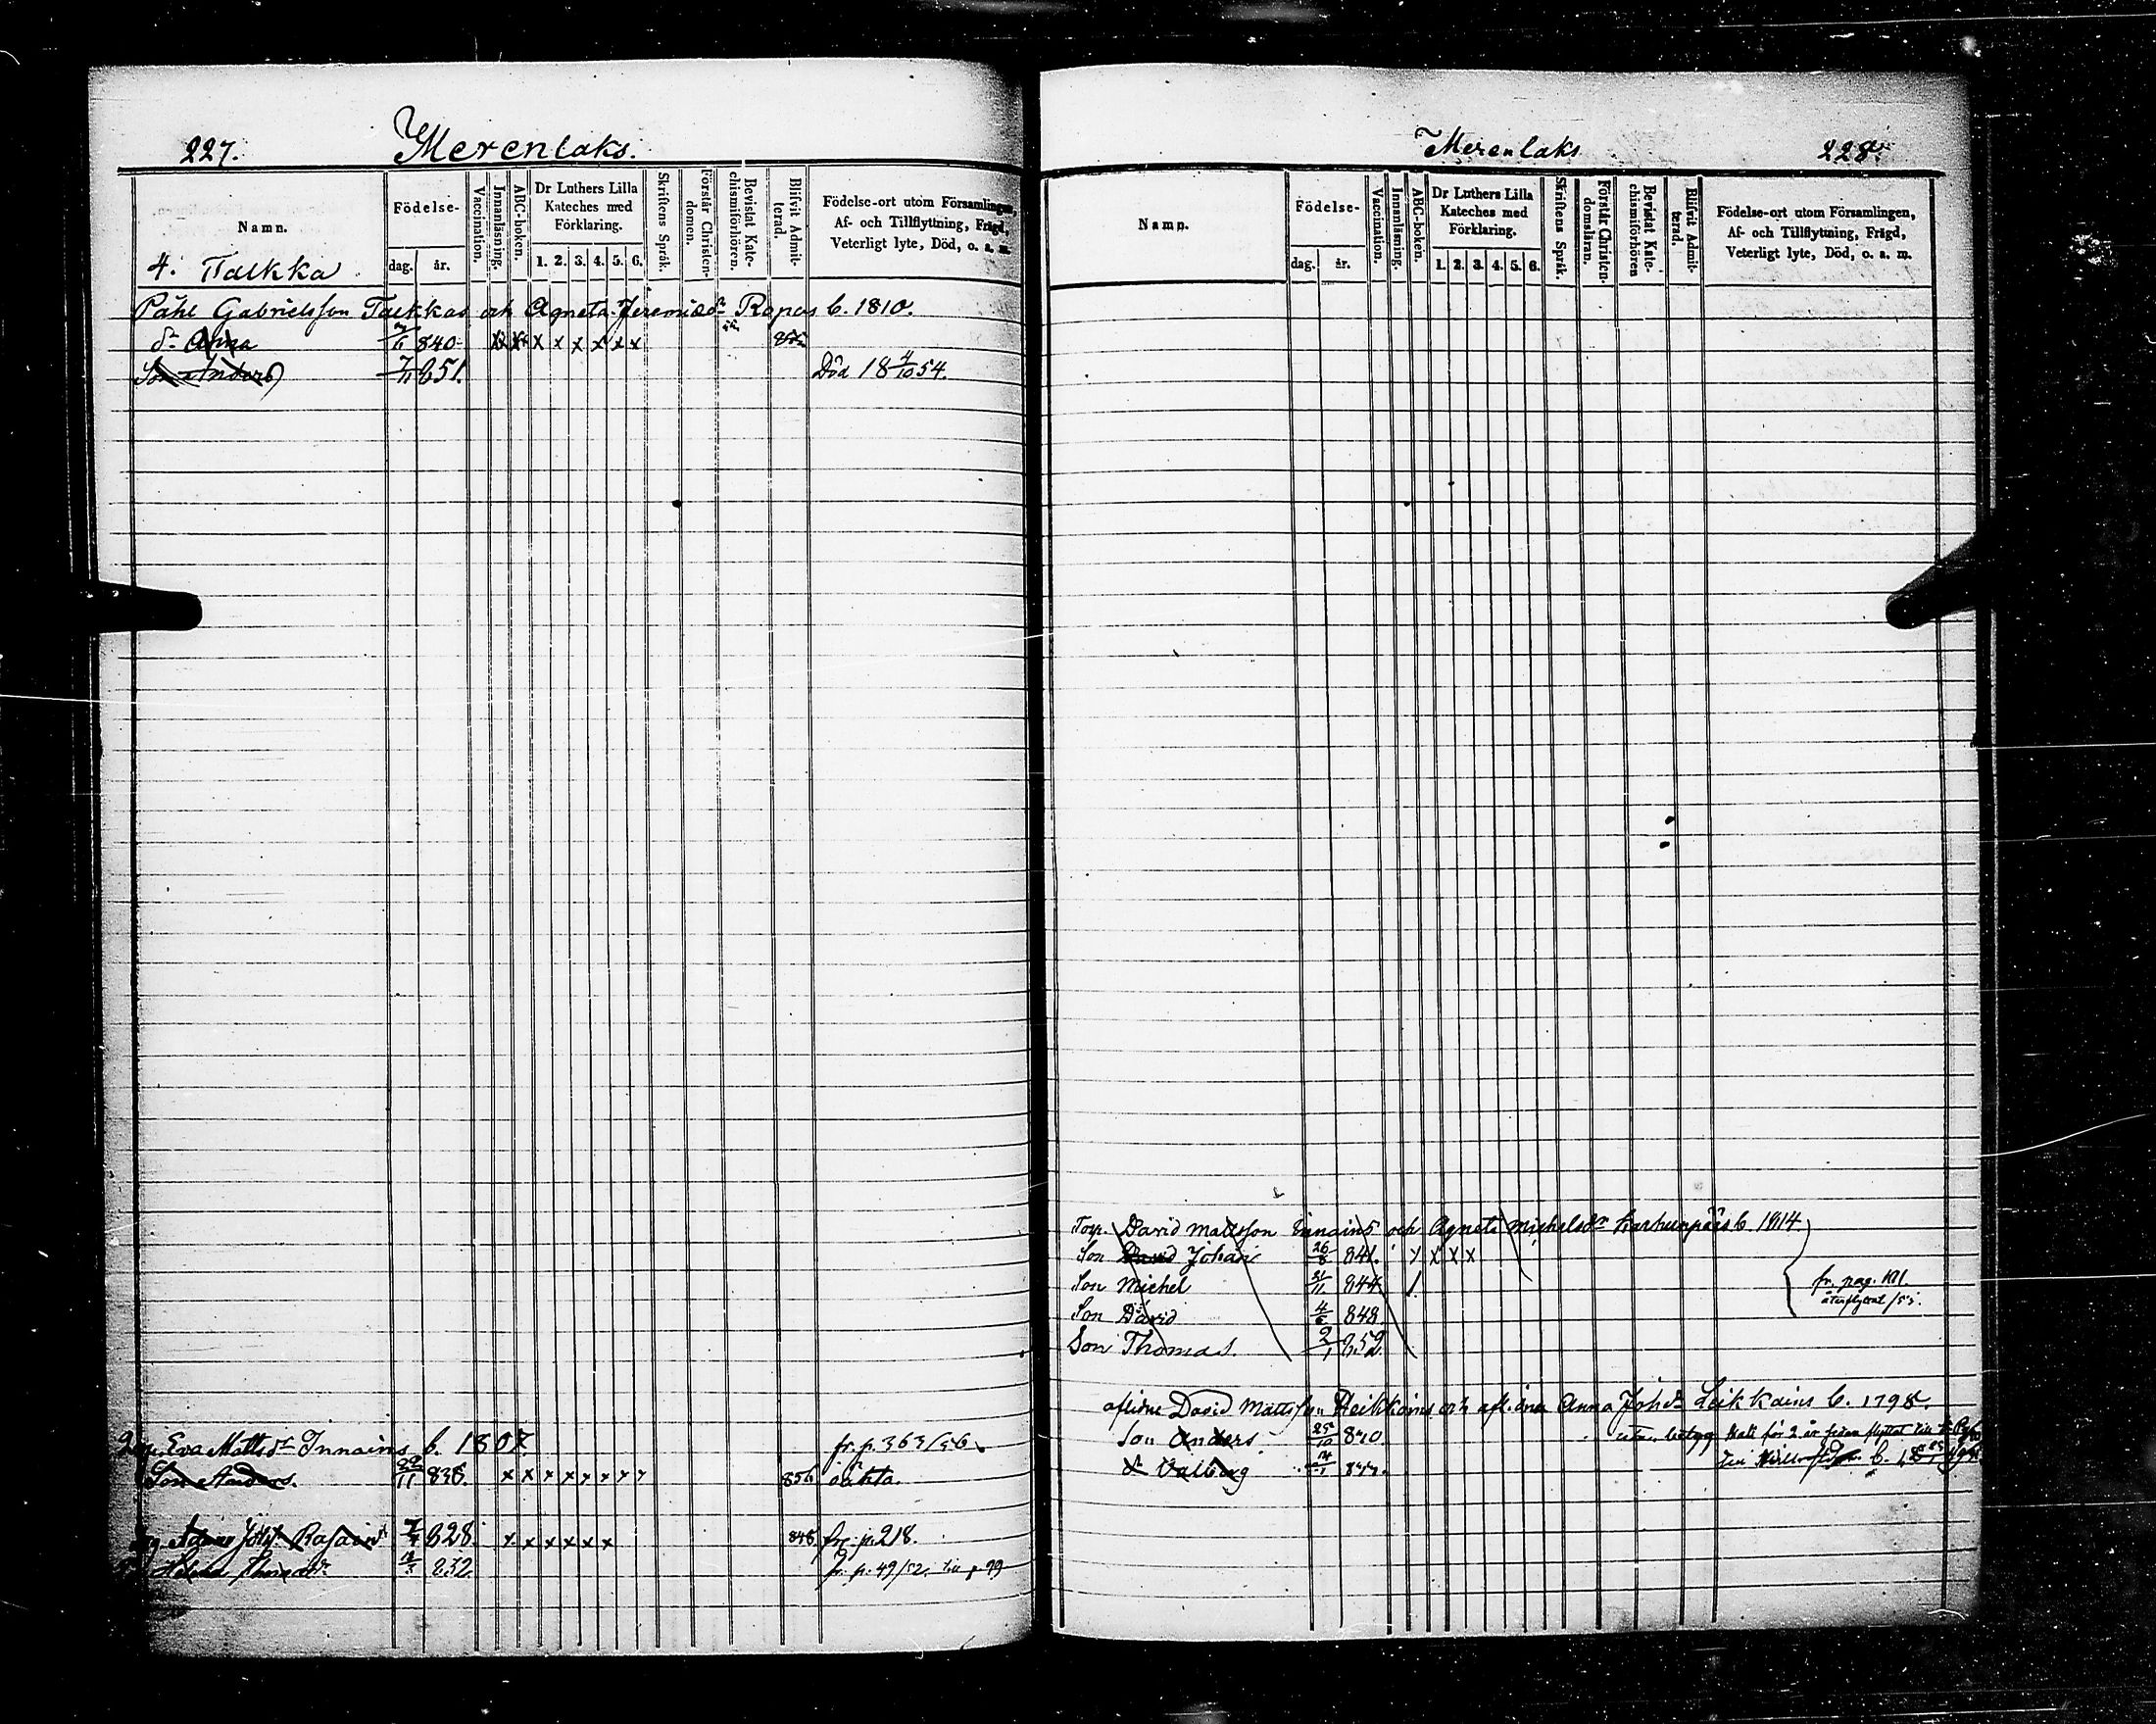 227. Merenlaks.
Namn.
Födelse-
dag. år.
Vaccination.
Innanläsning.
ABC-boken.
Dr Luthers Lilla Kateches med Förklaring.
1. 2. 3. 4. 5. 6.
Skriftens Språk.
Förstår Christendomen.
Bevistat Katechismiförhören.
Blifvit Admitterad.
Födelse-ort utom Församlingen,
Af- och Tillflyttning, Frägd,
Veterligt lyte, Död, o. a. m.
4. Talkka
Påhl Gabrielsson Talkkas och Agneta Jeremiædr Ropos b. 1810.
dr Anna 7/6 840 x x x x x x x x
Son Anders 7/11 851. Död 18 4/10 54.
Eva Mattsdr Innains b. 1807 fr. p. 363/56
Son Anders. 22/11 836. x x x x x x x x 856
828 x x x x x x 848 fr. p. 218.
Helena 852 fr. p. 49/52. p. 99
Merenlaks 228
Namn.
Födelse-
dag. år.
Vaccination.
Innanläsning.
ABC-boken.
Dr Luthers Lilla Kateches med Förklaring.
1. 2. 3. 4. 5. 6.
Skriftens Språk.
Förstår Christendomsläran.
Bevistat Katechismiförhören
Blifvit Admitterad.
Födelse-ort utom Församlingen,
Af- och Tillflyttning, Frägd,
Veterligt lyte, Död, o. a. m.
Torp. David Mattsson Innains och Agneta Michelsdr Karhunpääs b. 1814
Son David Johan 26/8 841. x x x
Son Michel 21/11 844 fr. pag. 181.
återflyttat /53.
Son David 4/6 848
Son Thomas. 2/1 852
aflidne David Mattsson Heikkoins och aflidna Anna Johdr Leikkains b. 1798.
Son Anders. 25/10 840 utan betyg skall för 2 år sedan flyttat till
dr Valborg